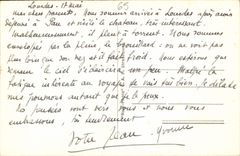 Lourdes - 17 mai 65
mes chers parents, nous sommes arrivés à Lourdes après avoir
déjeuné à Pau et visité le chateau, très intéressant.
Malheureusement, il pleut à torrent. Nous sommes
enveloppés par la pluie, le brouillard : on ne voit pas
plus loin que son nez et il fait froid. Nous espérons que
demain le ciel s'éclaircira un peu. Malgré la
fatigue le voyage de vait si bien. Je
mes poumons autant que je le peux.
Nos pensées vont vers vous et nous vous
embrassons, bien tendrement
Votre Jean - Yvonne